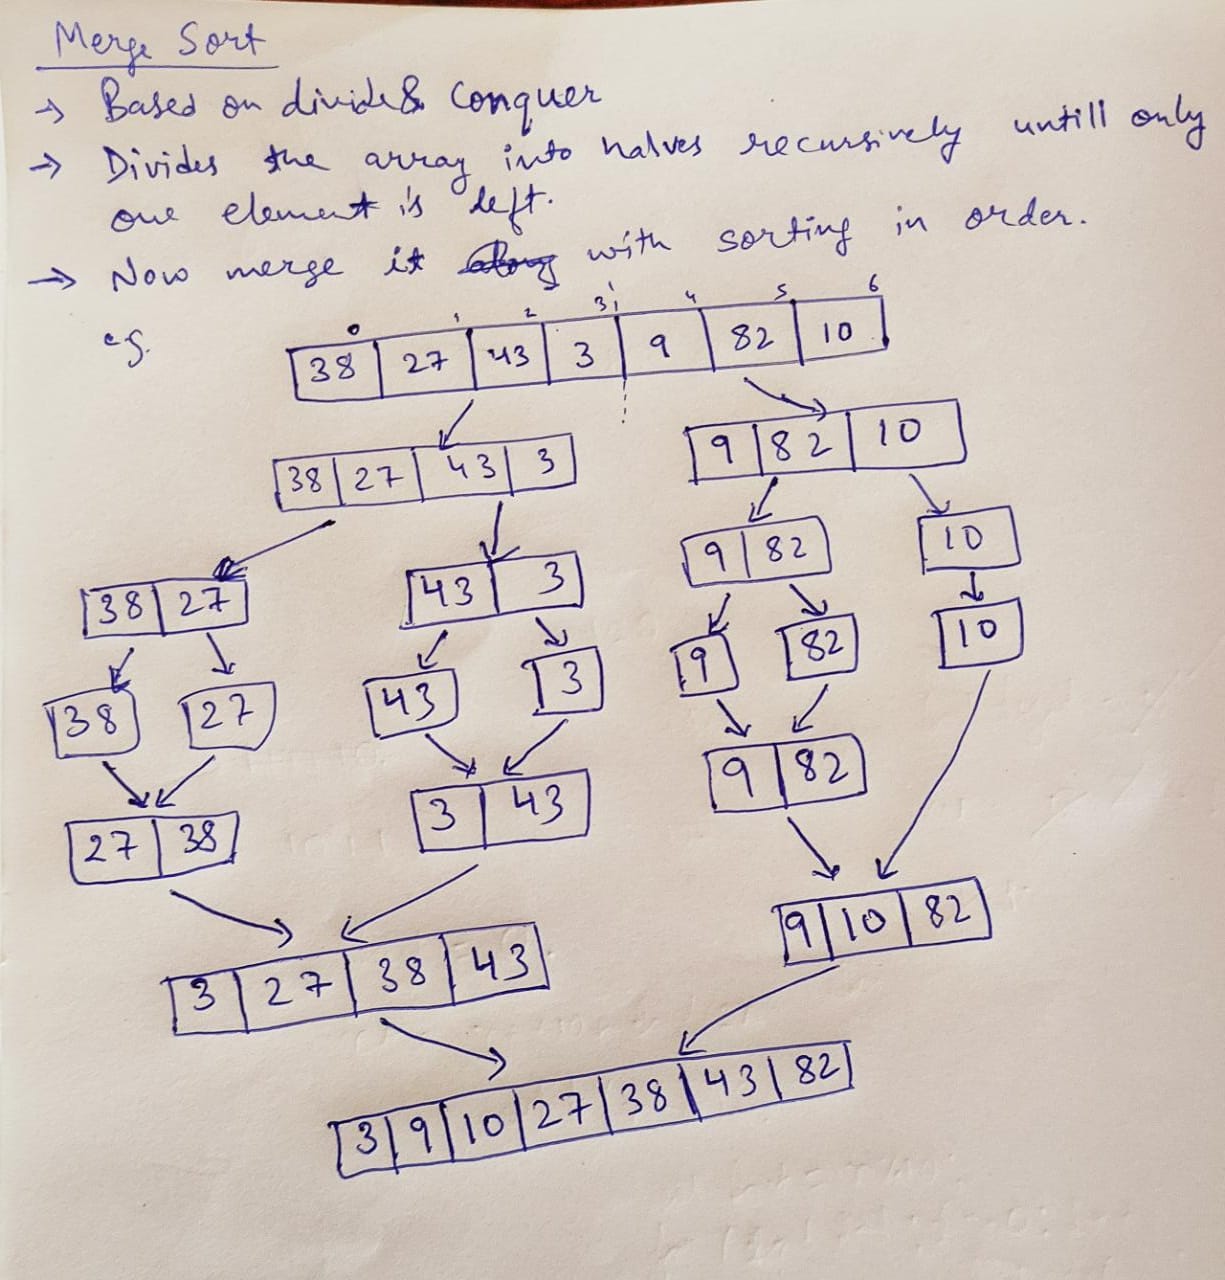 Merge Sort
→ Based on divide & Conquer
→ Divides the array into halves recursively untill only
one element is left.
→ Now merge it along with sorting in order.
eg.
0 1 2 3 4 5 6
38 27 43 3 9 82 10
38 27 43 3 9 82 10
38 27 43 3 9 82 10
38 27 43 3 9 82 10
27 38 3 43 9 82
3 27 38 43 9 10 82
3 9 10 27 38 43 82